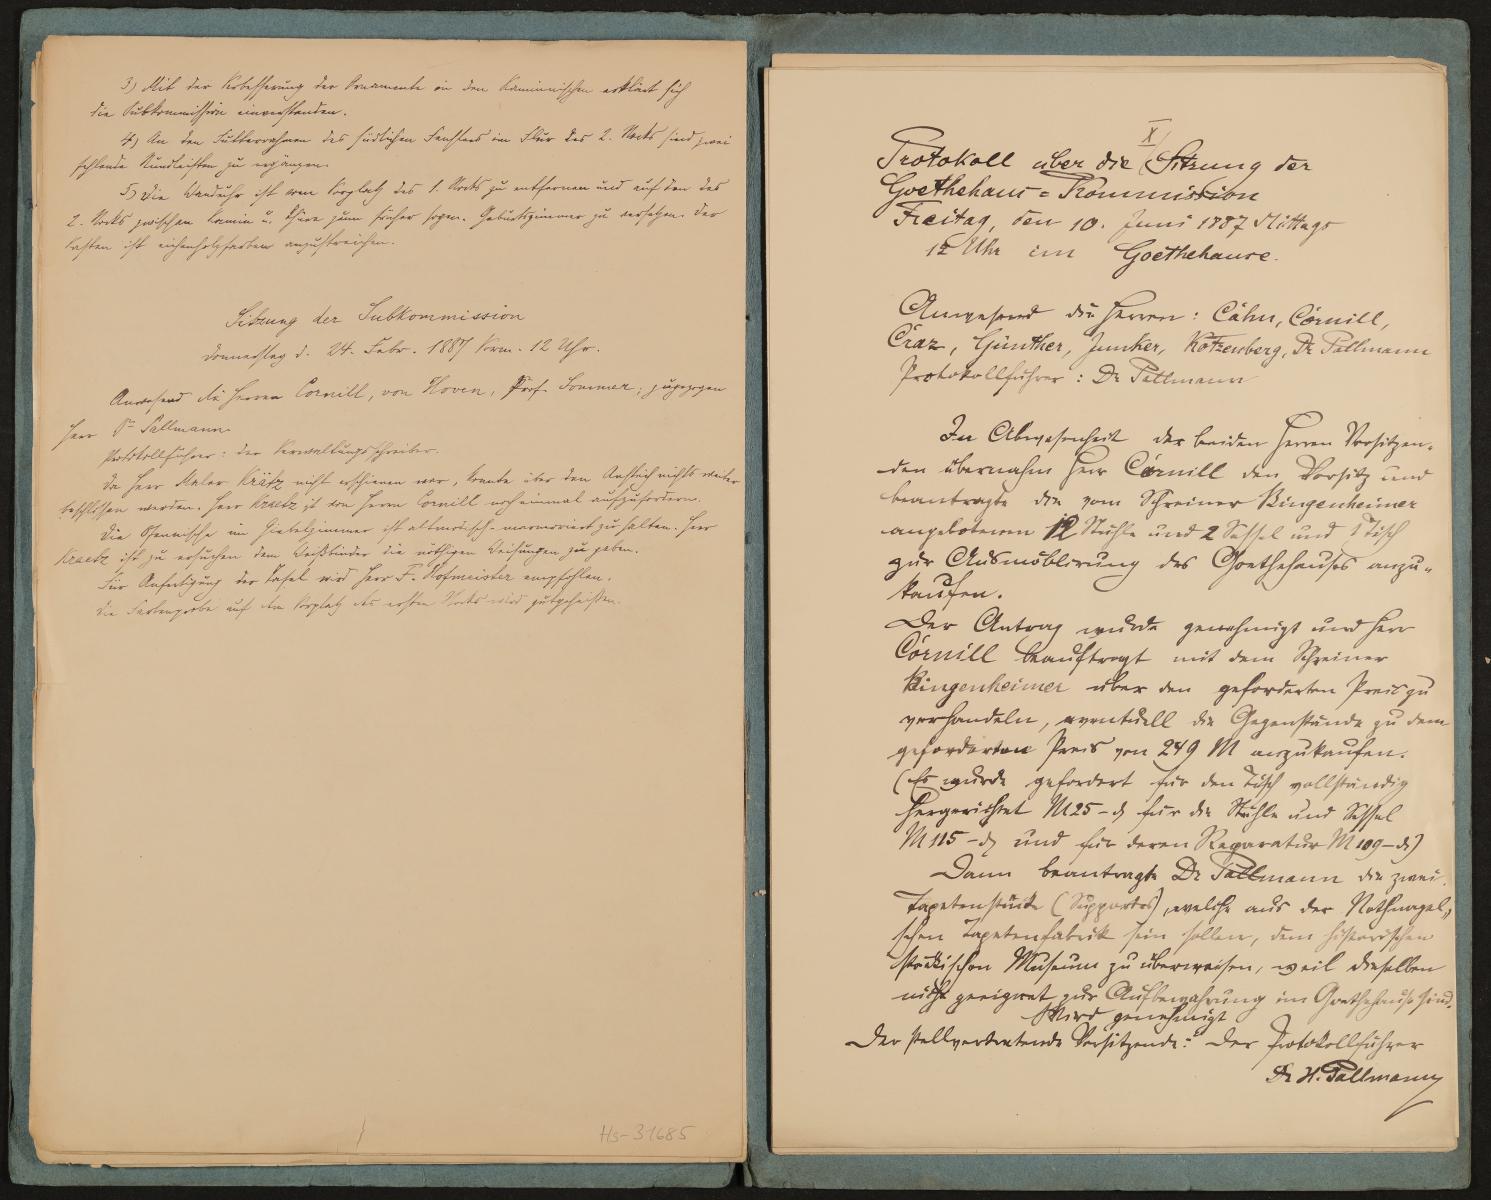 3) Mit der Verbesserung der Ornamente in den Kaminnischen erklärt sich
die Subkommission einverstanden.
4) An den Futterrahmen des südlichen Fensters im Flur des 2. Stocks sind zwei
fehlende Rundleisten zu ergänzen.
5) Die Wanduhr ist vom Vorplatz des 1. Stocks zu entfernen und auf den des
2. Stocks zwischen Kamin u. Thüre zum früher sogen. Geburtszimmer zu versetzen. Der
Kasten ist eichenholzfarben anzustreichen.
Sitzung der Subkommission
Donnerstag d. 24. Febr. 1887 Vorm. 12 Uhr.
Anwesend die Herren Cornill, von Hoven, Prof. Sommer; zugezogen
Herr Dr Pallmann.
Protokollführer: der Verwaltungsschreiber.
Da Herr Maler Krätz nicht erschienen war, konnte über den Anstrich nichts weiter
beschlossen werden. Herr Kraetz ist von Herrn Cornill noch einmal aufzufordern.
Die Ofennische im Giebelzimmer ist altmodisch-marmoriert zu halten. Herr
Kraetz ist zu ersuchen dem Weißbinder die nöthigen Weisungen zu geben.
Für Anfertigung der Tafel wird Herr F. Hofmeister empfohlen.
Die Farbenprobe auf dem Vorplatz des ersten Stocks wird gutgeheißen.
Hs-31685
X
Protokoll über die Sitzung der
Goethehaus=Kommission
Freitag, den 10. Juni 1887 Mittags
12 Uhr im Goethehause.
Anwesend die Herren: Cahn, Cornill,
Craz, Günther, Junker, Kotzenberg, Dr Pallmann
Protokollführer: Dr Pallmann
In Abwesenheit der beiden Herren Vorsitzen-
den übernahm Herr Cornill den Vorsitz und
beantragte die vom Schreiner Bingenheimer
angebotenen 12 Stühle und 2 Sessel und 1 Tisch
zur Ausmöblirung des Goethehauses anzu-
kaufen.
Der Antrag wurde genehmigt und Herr
Cornill beauftragt mit dem Schreiner
Bingenheimer über den geforderten Preis zu
verhandeln, eventuell die Gegenstände zu dem
geforderten Preis von 249 M anzukaufen.
(Es wurde gefordert für den Tisch vollständig
hergerichtet M 25 – für die Stühle und Sessel
M 115 – und für deren Reparatur M 109 –)
Dann beantragte Dr Pallmann die zwei
Tapetenstücke (Supportes), welche aus der Nothnagel„
schen Tapetenfabrik sein sollen, dem historischen
städtischen Museum zu überweisen, weil dieselben
nicht geeignet zur Aufbewahrung im Goethehause sind.
Wird genehmigt
Der stellvertretende Vorsitzende: Der Protokollführer
Dr H. Pallmann